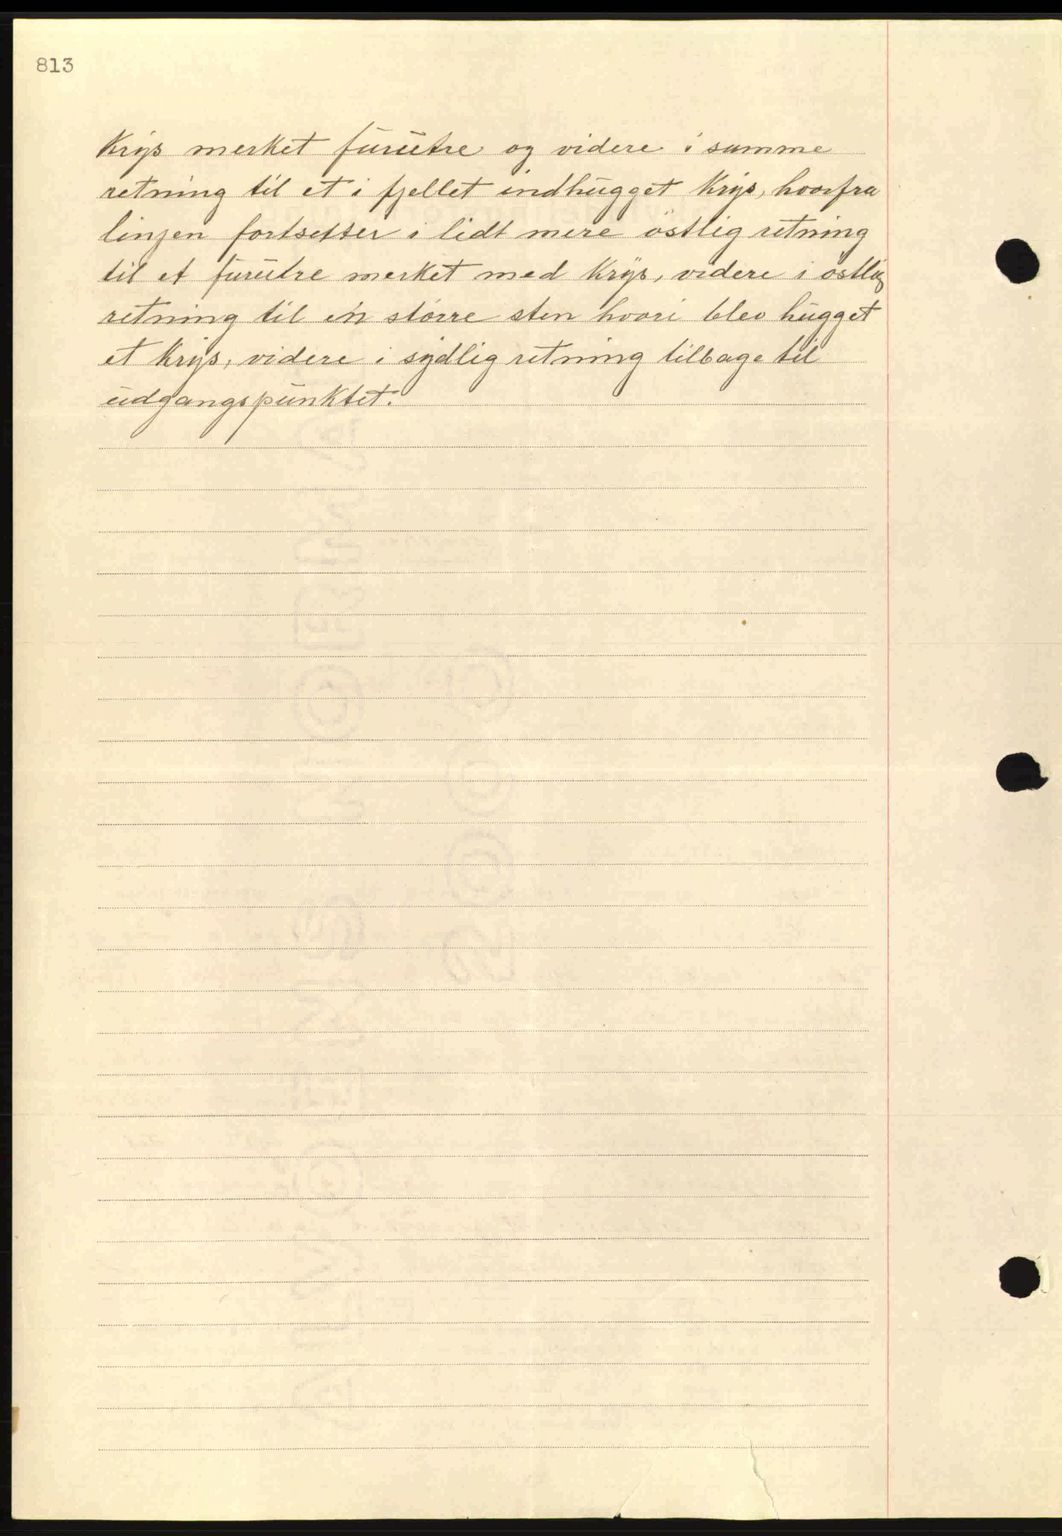 813
Krys merket furutre og videre i samme
retning til et i fjellet indhugget Krys, hvorfra
linjen fortsetter i lidt mere östlig retning
til et furutre merket med Krys, videre i östlig
retning til én større sten hvori blev hugget
et Krys, videre i sydlig retning tilbage til
udgangspunktet.